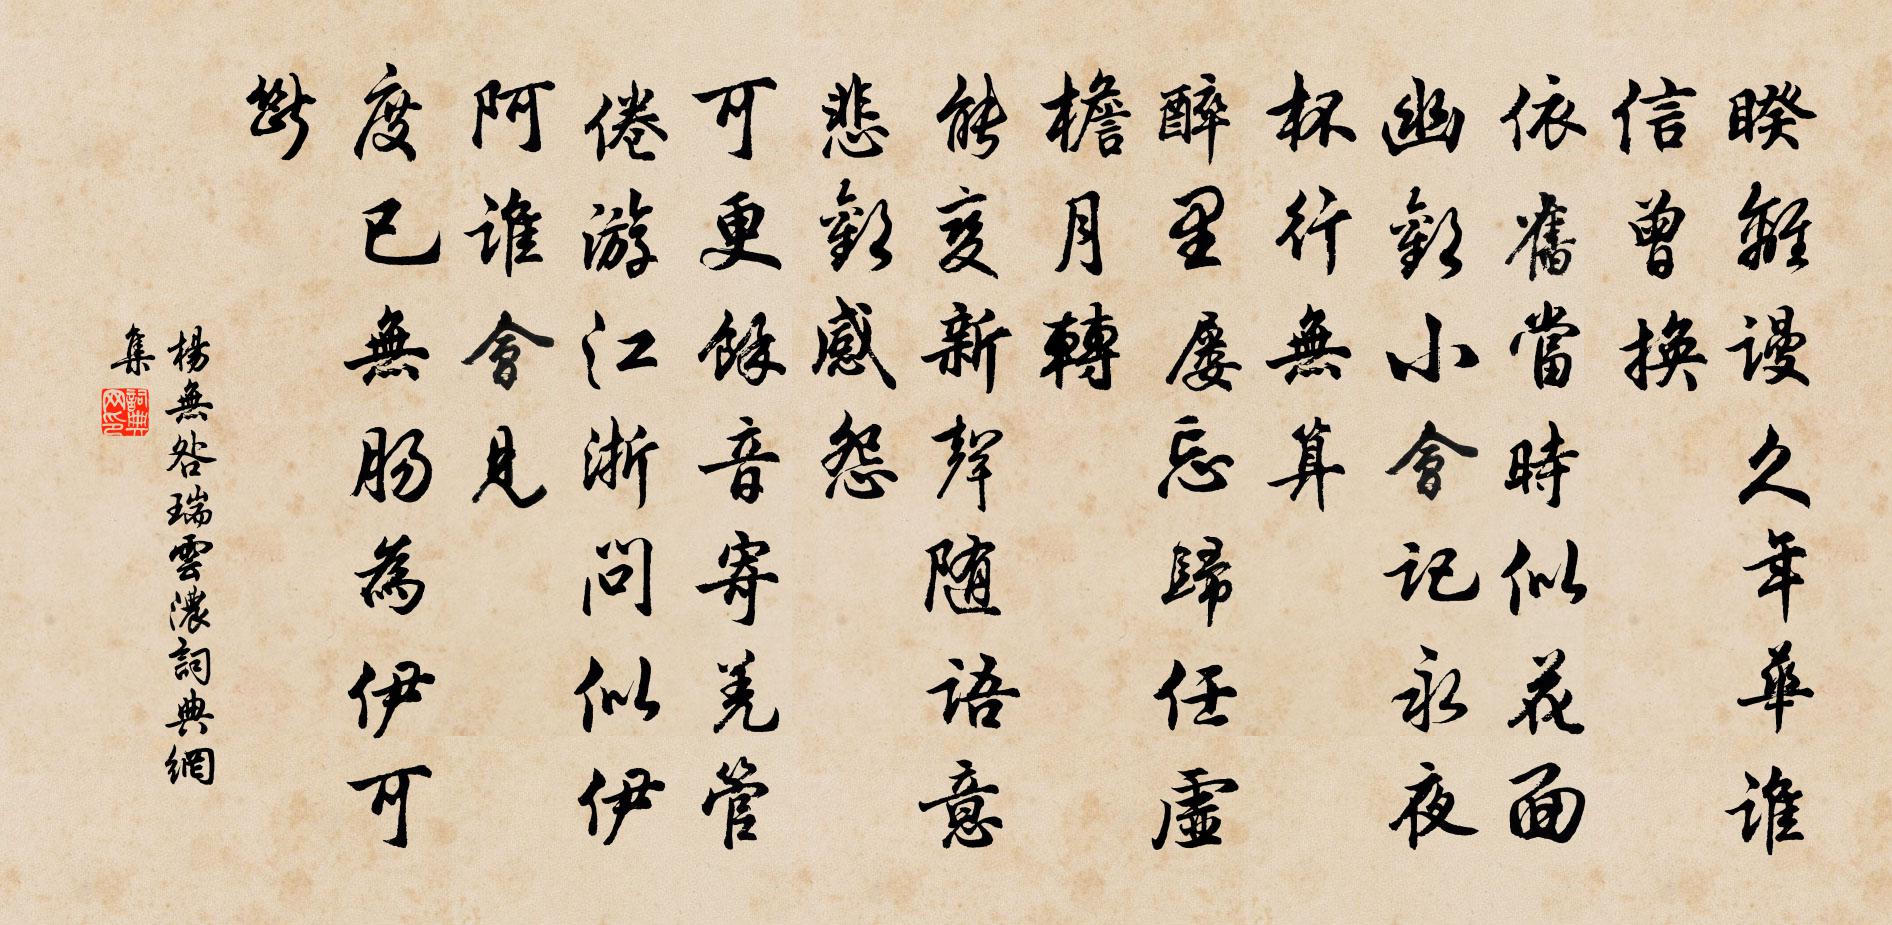 睽離謾久年華誰
信曾換
依舊當時似花面
幽歡小會記永夜
杯行無算
醉里屡忘歸任虛
檐月轉
能变新聲随語意
悲歡感怨
可更餘音寄羌管
倦游江浙問似伊
阿誰會見
度已無腸為伊可
斷
楊無咎瑞雲濃詞典網
集
詞典网印